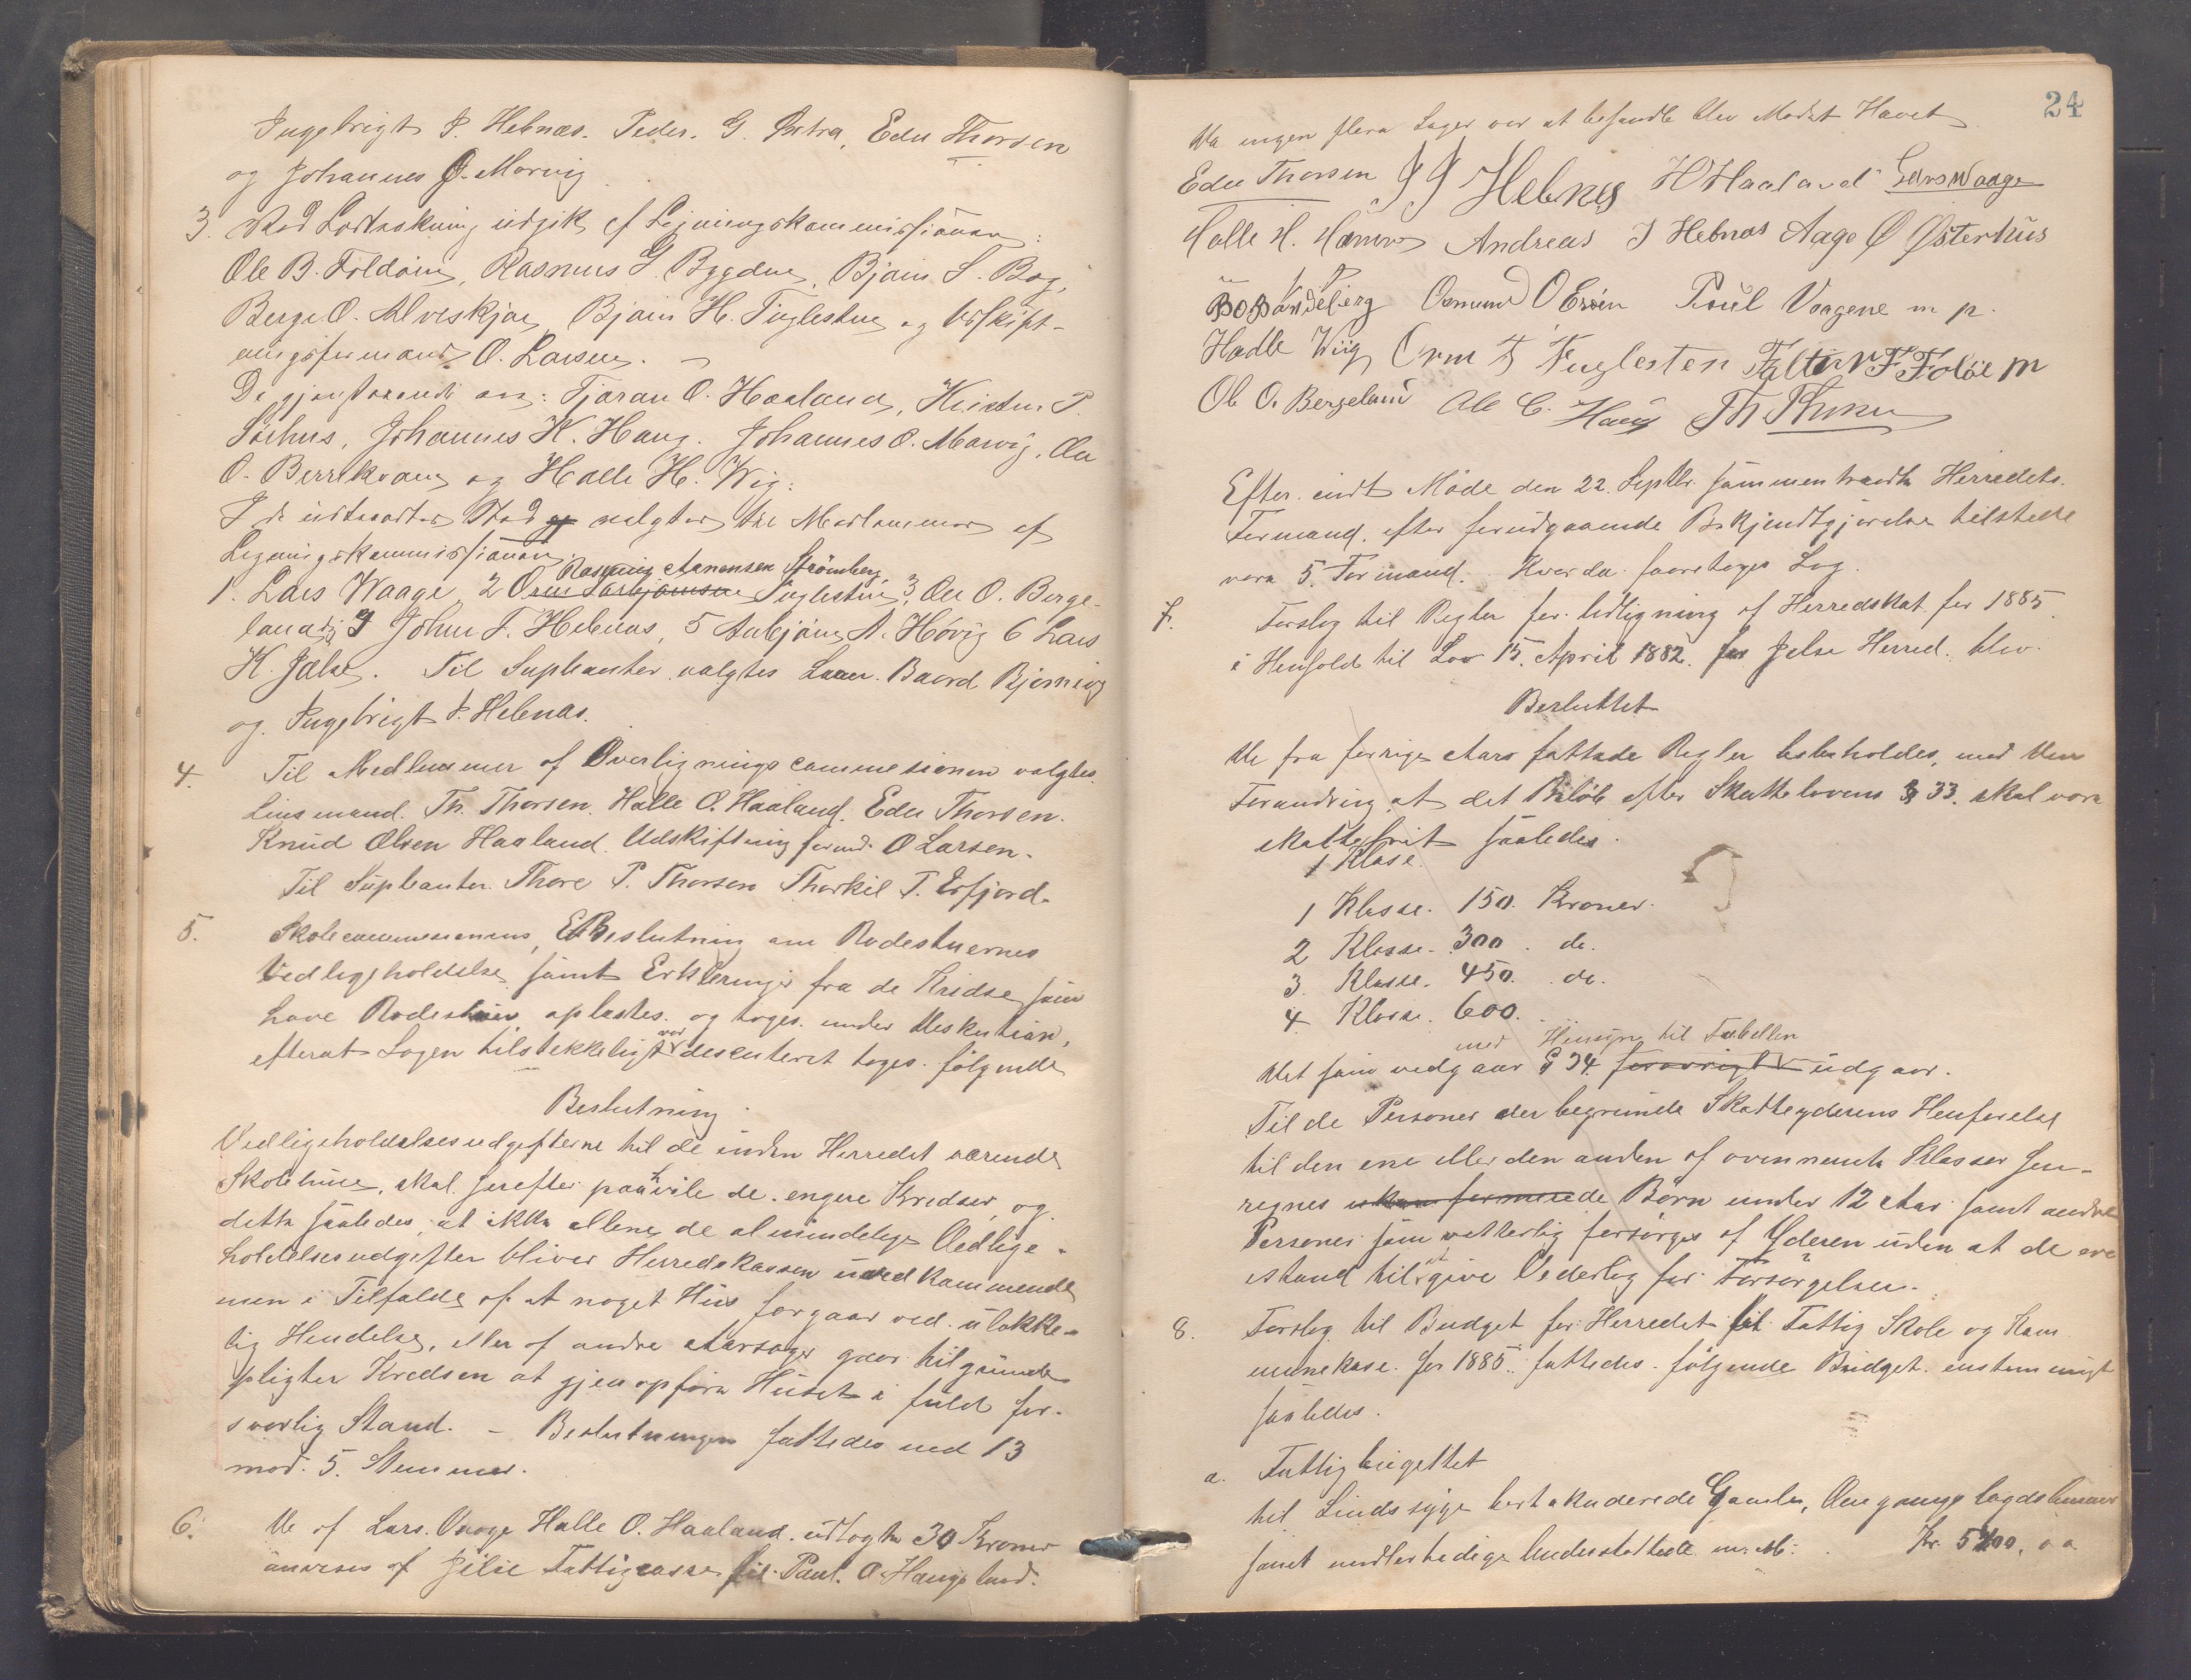 Ingebrigt I. Hebnæs. Peder. G. Østraa, Edu Thorsen
og Johannes O. Marvig
3. Ved Lodtrækning udgik af Ligningskommissionen:
Ole B. Foldøen, Rasmus G. Bygdnes, Bjørn S. Bog,
Berge O. Alveskjær, Bjørn H. Fuglesteen og Udskift-
ningsformand O. Larsen. –
De gjenstaaende ere: Tjøran O. Haaland, Kristen P.
Sørhus, Johannes K. Haug. Johannes O. Marvig, Ole
O. Berrekvam og Halle H. Wig.
I de udtraadtes Sted og valgtes til Medlemmer af
Ligningskommissionen
Rasmus Aanensen Strømberg
1. Lars Waage, 2 Orm Torbjørnsen Fuglesteen, 3, Ole O. Berge-
land, 4 John T. Hebnæs, 5 Anbjørn A. Høvig 6 Lars
K. Jælse. Til Supleanter valgtes Baard Bjørnevig
og Ingebrigt I. Hebnæs.
4. Til Medlemmer af Overligningscommesionen valgtes
Lensmand. Th. Thorsen. Halle O. Haaland. Edu Thorsen.
Knud Olsen Haaland. Udskiftningsformd. O Larsen.
Til Supleanter. Thore P. Thorsen Thorkil T. Erfjord.
5. Skolecommesionens, Beslutning om Rodestuernes
Vedligeholdelse samt Erkleringer fra de Kridse som
have Rodestuer oplæstes. og toges. under Diskution,
efterat Sagen tilstrekkeligt var descuteret toges. følgende
Beslutning
Vedligeholdelsesudgifterne til de inden Herredet værende
Skolehuse, skal herefter paahvile de. engere Kredser og
dette saaledes, at ikke allene de almindelige Vedlige-
holdelsesudgifter bliver Herredskassen uvedkommende
men i Tilfælde af at noget Hus forgaar ved ulykke-
lig Hendelse, eller af andre Aarsager gaar tilgrunde
pligter Kredsen at gjenopføre Huset i fuld for-
svarlig Stand. – Beslutningen fattedes med 13
mod. 5. Stemmer.
6. De af Lars. Vaage Halle O. Haaland. udlagte 30 Kroner
anvises af Jelse Fattigcasse til Paul. O. Haugeland.
24
Da ingen flere Sager var at behandle blev Mødet Hævet
Edu Thorsen J J Hebnes H O Haaland Lars Waage
Halle H. Hamre Andreas J Hebnæs Aage Ø Østerhus
B O Bandeberg Osmund O Erøen Poul Vaagene m p.
Hadle Wiig Orm T Fuglesten Falten F Foløe m
Ole O. Bergeland Ole C. Haug Th Thorsen
Efter endt Møde den 22. Septbr. sammentraadte Herredets.
Formand. efter forudgaaende Bekjendtgjørelse tilstede
vare 5. Formænd. Hvor da foretoges Sag.
7. Forslag til Regler for. Udligning af Herredskat for 1885
i Henhold til Lov 15. April 1882. for Jelse Herred. blev.
Besluttet
De fra forrige Aars fattede Regler bebeholdes, med den
Forandring at det Beløb efter Skattelovens § 33. skal være
skattefrit saaledes.
1 Klase.
1 Klasse. 150. Kroner.
2 Klasse. 300. do.
3. Klasse. 450. do.
4 Klasse. 600.
med Hensyn til Tabellen
Det som vedgaar § 34 forøvrigt udgaar.
Til de Personer der begrunde Skatteyderens Henførelse
til den ene eller den anden af ovennevnte Klasser hen-
regnes de Børn under 12 Aar samt andre
Personer som vitterlig forsørges af Yderen uden at de ere
istand til at give Vederlag for Forsørgelsen.
8. Forslag til Budget for Herredet til Fattig Skole og Kom
munekase. for 1885. fattedes. følgende Budget. enstemmigt
saaledes.
a. Fattigbugettet
til Sindssyge Gamle,
samt midlertidige Understøttede m. M: . Kr. 5400, 00